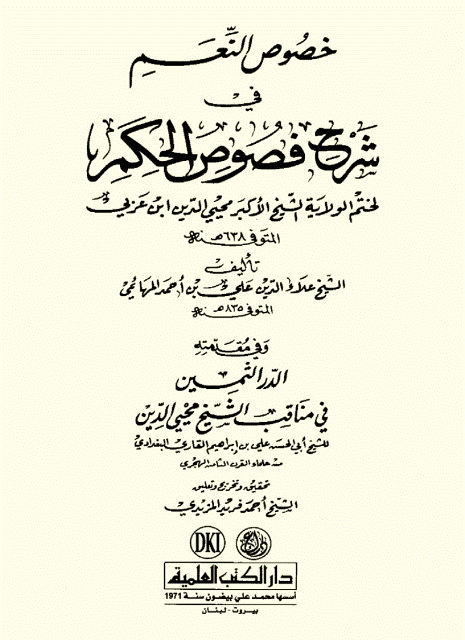 خصوص النعم
في
شرح فصوص الحكم
لختم الولاية الشيخ الأكبر محيي الدين ابن عربي
المتوفى ٦٣٨هـ سنة
تأليف
الشيخ علاء الدين علي بن أحمد المهائمي
المتوفى ٨٣٥هـ سنة
وفي مقدمته
الدر الثمين
في مناقب الشيخ محيي الدين
للشيخ أبي الحسن علي بن إبراهيم القاري البغدادي
من علماء القرن الثامن الهجري
تحقيق وتخريج وتعليق
الشيخ أحمد فريد المزيدي
DKI
دار الكتب العلمية
أسسها محمد علي بيضون سنة 1971
بيروت - لبنان